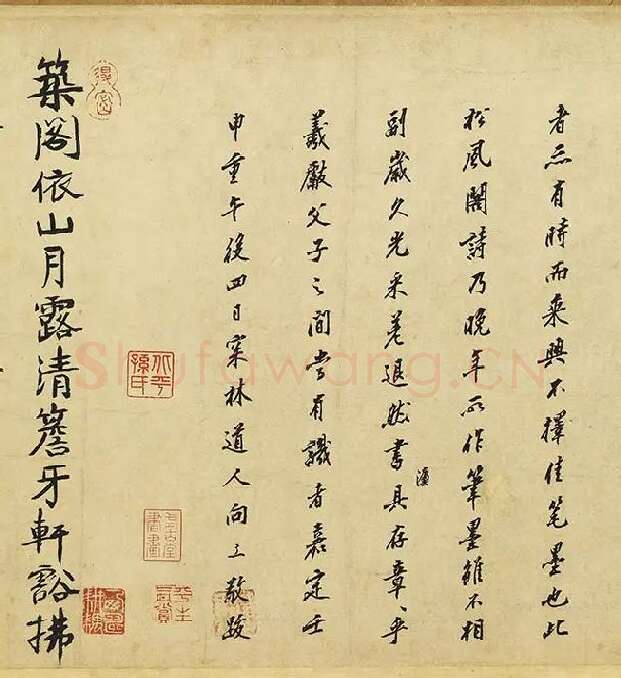 者亦有時而乘興不擇佳笔墨也此
松風閣詩乃晚年所作筆墨雖不相
副歲久光采差退然書具存章、乎
羲獻父子之間當有識者嘉定壬
申重午後四日寀林道人向敬跋
北平孫氏
築閣依山月露清簷牙軒豁拂
Shufawang.CN